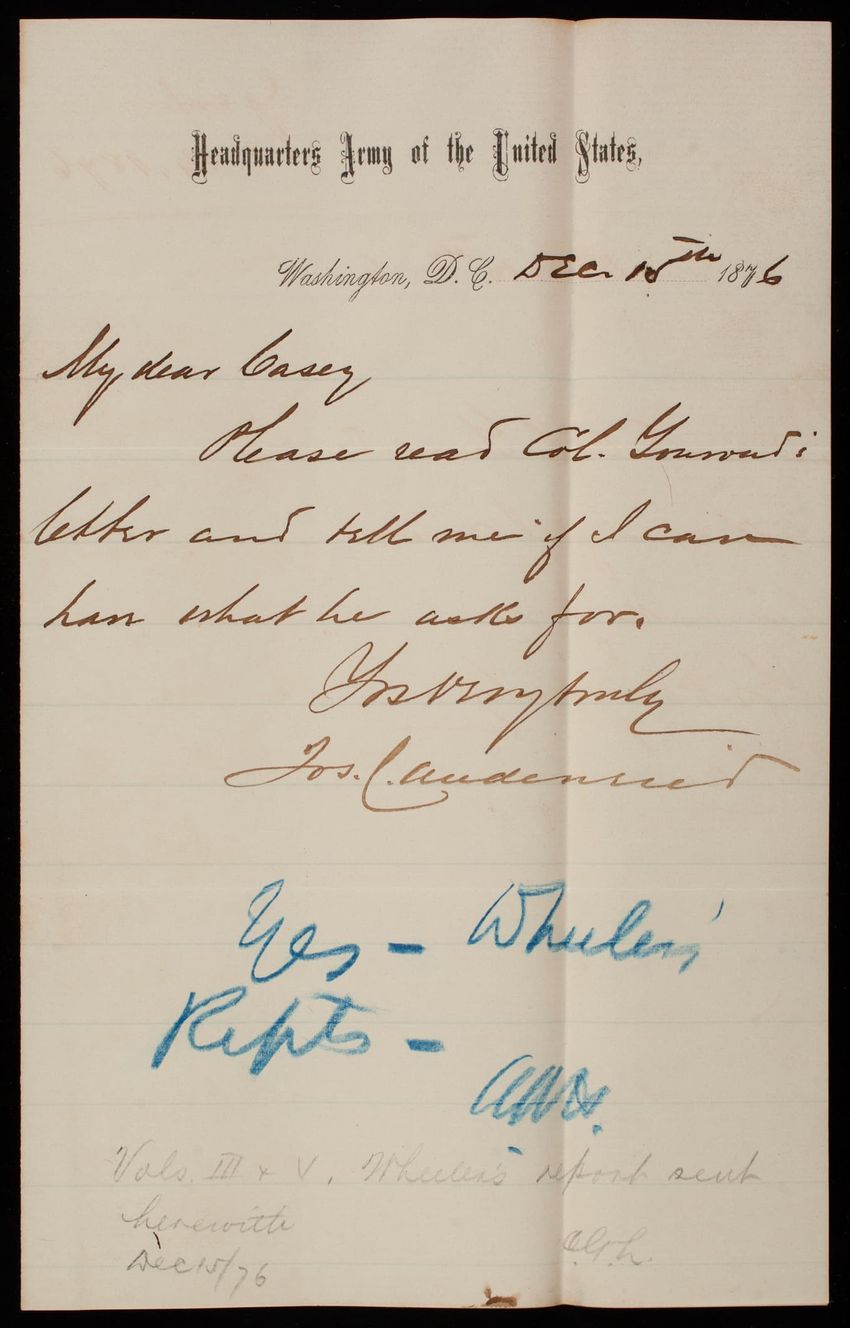 Headquarters Army of the United States,
Washington, D.C. Dec. 15th 1876
My dear Casey
Please read Col.
letter and tell me if I can
have what he asks for.
Yrs very truly
Jos. C. Audenried
Yes - Wheeler's
Repts -
Vols. III & V. Wheeler's report sent
herewith
Dec 15/76